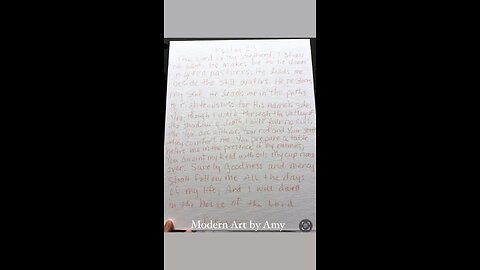 Psalm 23
The Lord is my shepherd; I shall
not want. He makes me to lie down
in green pastures; He leads me
beside the still waters. He restores
my soul; He leads me in the paths
of righteousness for His name's sake.
Yea, though I walk through the valley of
the shadow of death, I will fear no evil;
For You are with me; Your rod and Your staff
they comfort me. You prepare a table
before me in the presence of my enemies;
You anoint my head with oil; My cup runs
over. Surely Goodness and mercy
shall follow me All the days
of my life; And I will dwell
in the House of the Lord
Modern Art by Amy